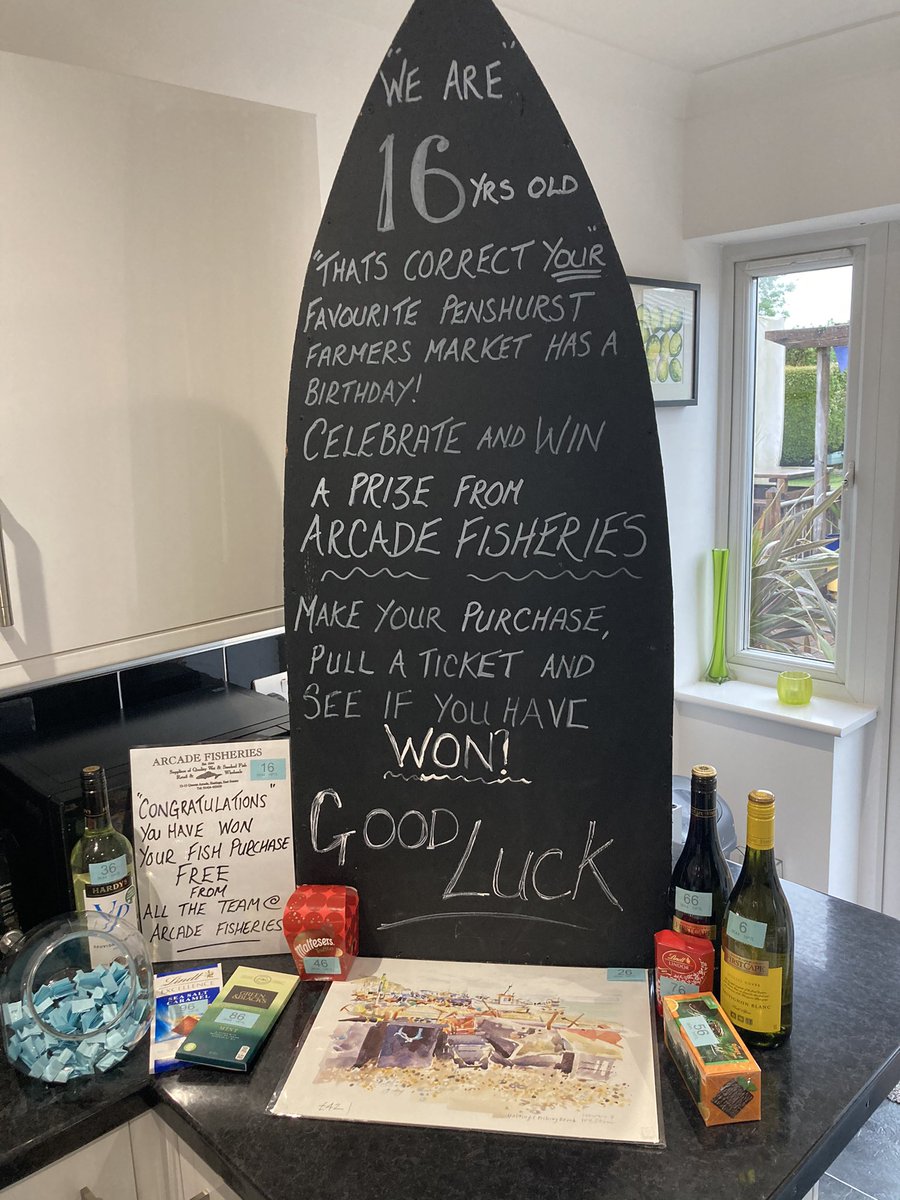 "WE ARE"
16 YRS OLD
"THATS CORRECT YOUR"
FAVOURITE PENSHURST
FARMERS MARKET HAS A
BIRTHDAY!
CELEBRATE AND WIN
A PRIZE FROM
ARCADE FISHERIES
MAKE YOUR PURCHASE,
PULL A TICKET AND
SEE IF YOU HAVE
WON!
GOOD LUCK
ARCADE FISHERIES
16
Suppliers of Quality Wet & Smoked Fish
Retail & Wholesale
"CONGRATULATIONS"
YOU HAVE WON
YOUR FISH PURCHASE
FREE
FROM
ALL THE TEAM @
ARCADE FISHERIES
36
HARDYS
Maltesers
46
Lindt
EXCELLENCE
SEA SALT
CARAMEL
96
GREEN
& BLACK'S
86
MINT
26
£42
66
6
FIRST CAPE
SAUVIGNON BLANC
Lindt
LINDOR
76
56